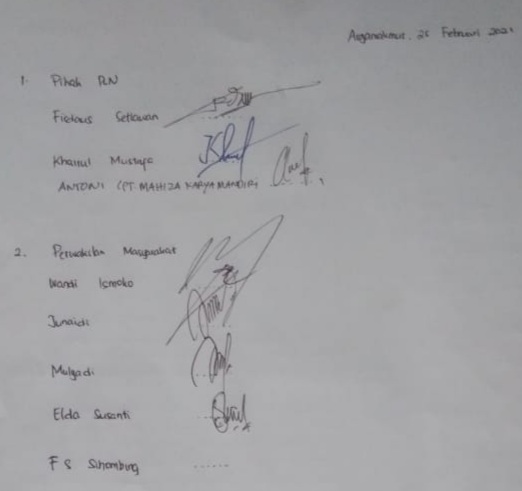 Arganakmur, 25 Februari 2021
1. Pihak RN
Firdaus Setiawan
Khairul Mustafa
ANTONI (PT. MAHIZA KARYA MANDIRI)
2. Perwakilan Masyarakat
Wandi Ismoko
Junaidi
Mulyadi
Elda Susanti
F S Sihombing ......